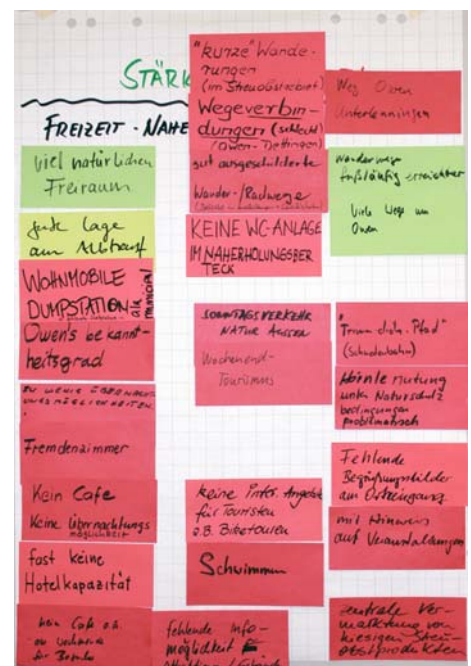 STÄRK
FREIZEIT - NAHE
viel natürlichen
Freiraum
gute Lage
am Albtrauf
WOHNMOBILE
DUMPSTATION
Owen's bekannt-
heitsgrad
ZU WENIG ÜBERNACHT
UNGSMÖGLICHKEITEN.
Fremdenzimmer
Kein Cafe
Keine Übernachtungs
möglichkeit
fast keine
Hotelkapazität
kein Cafe o.ä.
für Besucher
"kurze" Wande-
rungen
(im Streuobstgebiet)
Wegeverbin-
dungen (schlecht)
(Owen-Dettingen)
gut ausgeschilderte
Wander-/Radwege
KEINE WC-ANLAGE
IM NAHERHOLUNGSBER
TECK
SONNTAGSVERKEHR
NATUR AUSSEN
Wochenend-
Tourismus
keine inter. Angebote
für Touristen
z.B. Biketouren
Schwimmen
fehlende Info-
möglichkeit
Weg Owen
Unterlenningen
Wanderwege
fußläufig erreichbar
Viele Wege um
Owen
"Trimm-dich-Pfad"
Hörnle nutzung
unter Naturschutz
bedingungen
problematisch
Fehlende
Begrüßungsbilder
am Ortseingang
mit Hinweis
auf Veranstaltungen
zentrale Ver-
marktung von
hiesigen Streu-
obstprodukten